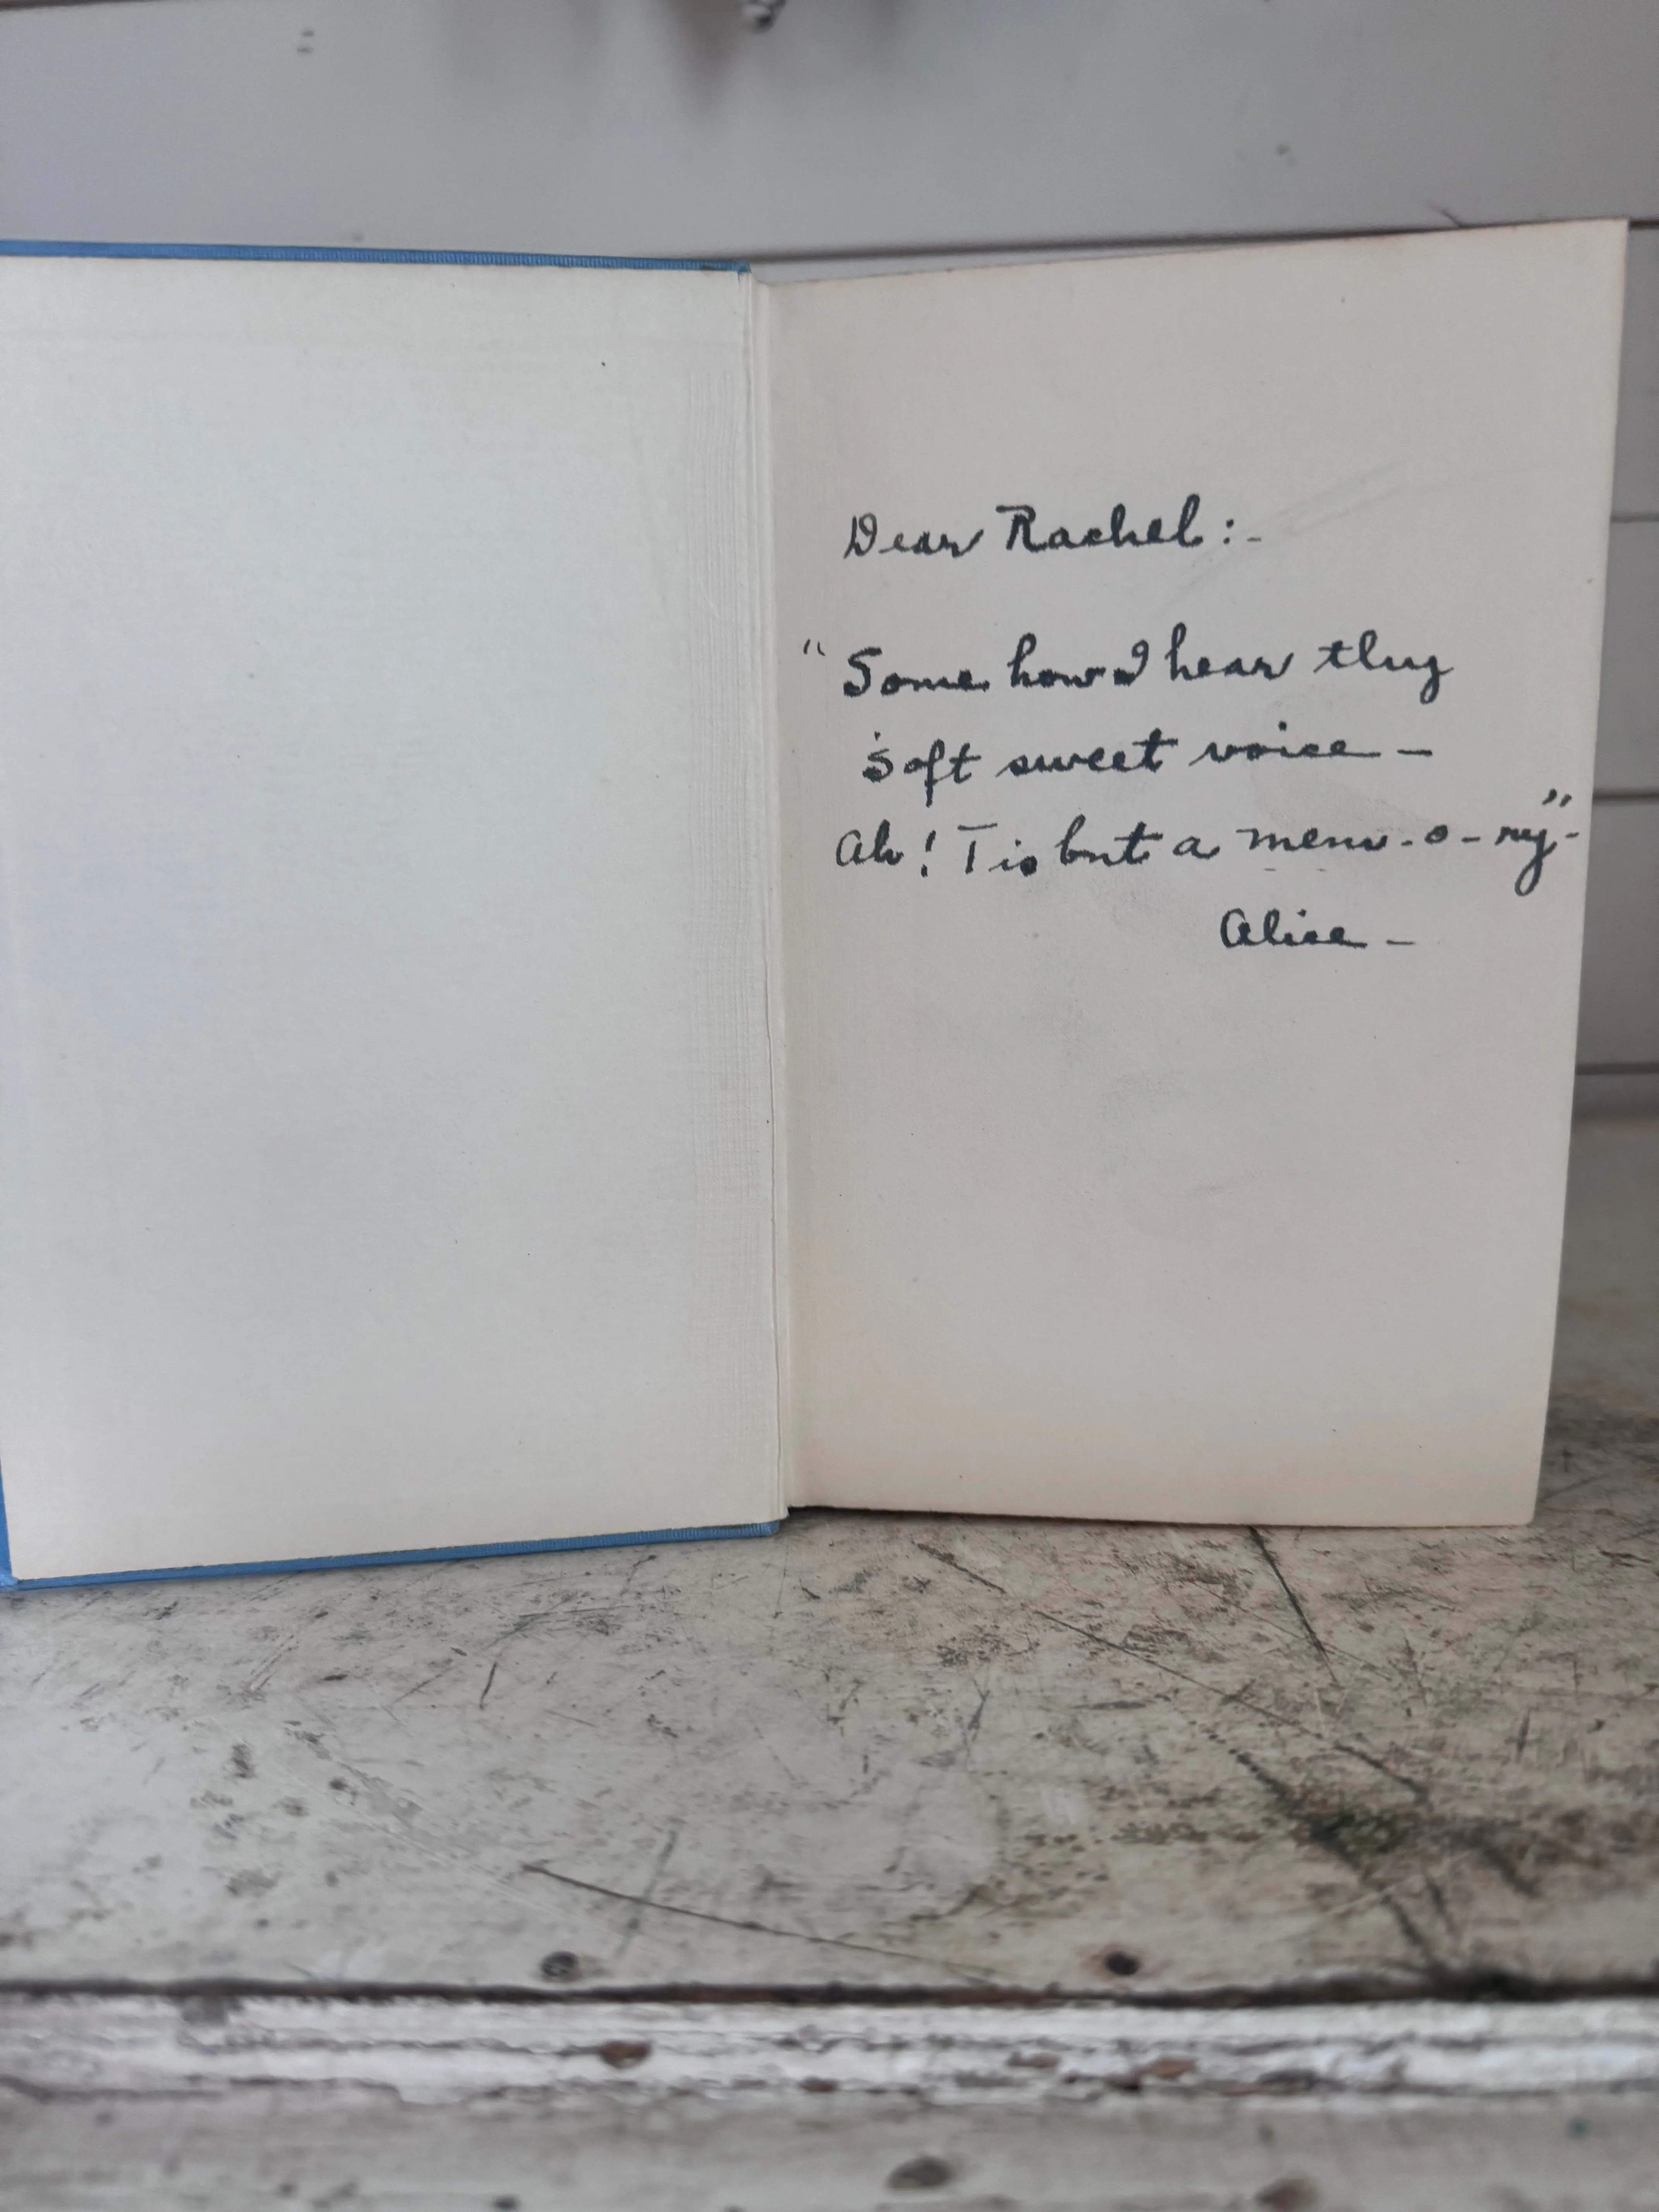 Dear Rachel:-
"Some how I hear thy
soft sweet voice -
Ah! Tis but a mem-o-ry"-
Alice -